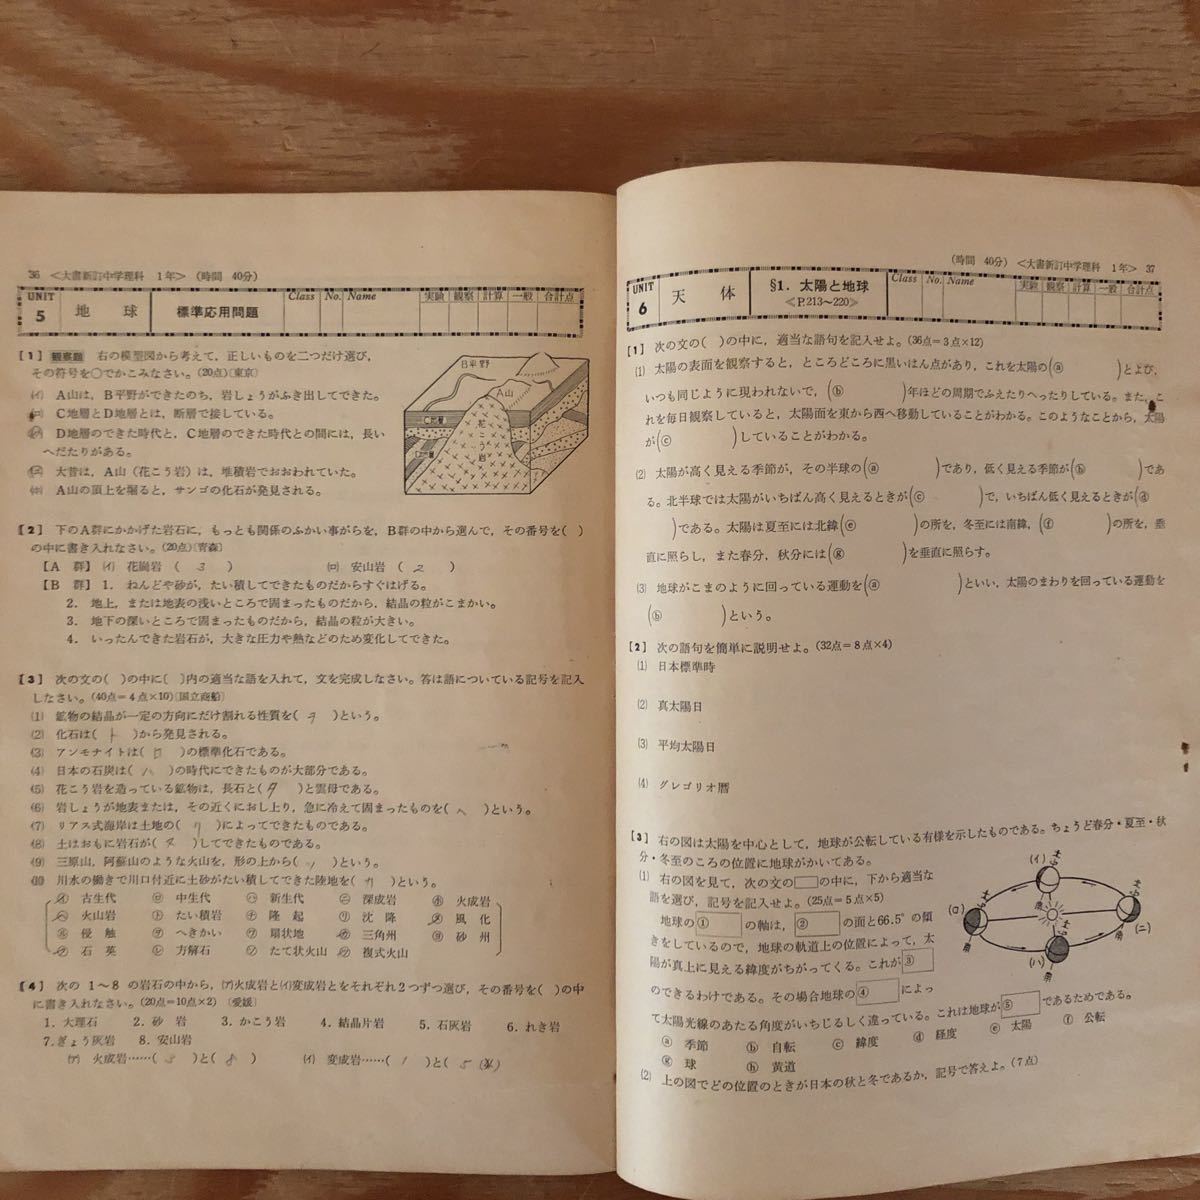 36 ＜大書新訂中学理科 1年＞（時間 40分）
UNIT 5 地球 標準応用問題 Class No. Name 実験 観察 計算 一般 合計点
【1】 観察題 右の模型図から考えて，正しいものを二つだけ選び，
その符号を○でかこみなさい。(20点)〔東京〕
(イ) A山は，B平野ができたのち，岩しょうがふき出してできた。
(ロ) C地層とD地層とは，断層で接している。
(ハ) D地層のできた時代と，C地層のできた時代との間には，長い
へだたりがある。
(ニ) 大昔は，A山（花こう岩）は，堆積岩でおおわれていた。
(ホ) A山の頂上を堀ると，サンゴの化石が発見される。
B平野
A山
C地層
D地層
花こう岩
【2】 下のA群にかかげた岩石に，もっとも関係のふかい事がらを，B群の中から選んで，その番号を( )
の中に書き入れなさい。(20点)〔青森〕
【A 群】 (イ) 花崗岩 ( 3 ) (ロ) 安山岩 ( 2 )
【B 群】 1. ねんどや砂が，たい積してできたものだからすぐはげる。
2. 地上，または地表の浅いところで固まったものだから，結晶の粒がこまかい。
3. 地下の深いところで固まったものだから，結晶の粒が大きい。
4. いったんできた岩石が，大きな圧力や熱などのため変化してできた。
【3】 次の文の( )の中に( )内の適当な語を入れて，文を完成しなさい。答は語についている記号を記入
しなさい。(40点＝4点×10)〔国立商船〕
(1) 鉱物の結晶が一定の方向にだけ割れる性質を( )という。
(2) 化石は( ト )から発見される。
(3) アンモナイトは( ロ )の標準化石である。
(4) 日本の石炭は( ハ )の時代にできたものが大部分である。
(5) 花こう岩を造っている鉱物は，長石と( タ )と雲母である。
(6) 岩しょうが地表または，その近くにおし上り，急に冷えて固まったものを( ヘ )という。
(7) リアス式海岸は土地の( リ )によってできたものである。
(8) 土はおもに岩石が( ヌ )してできたものである。
(9) 三原山，阿蘇山のような火山を，形の上から( )という。
(10) 川水の働きで川口付近に土砂がたい積してできた陸地を( カ )という。
(イ) 古生代 (ロ) 中生代 (ハ) 新生代 (ニ) 深成岩 (ホ) 火成岩
(ヘ) 火山岩 (ト) たい積岩 (チ) 隆起 (リ) 沈降 (ヌ) 風化
(ル) 侵触 (ヲ) へきかい (ワ) 扇状地 (カ) 三角州 (ヨ) 砂州
(タ) 石英 (レ) 方解石 (ソ) たて状火山 (ツ) 複式火山
【4】 次の 1～8 の岩石の中から，(ア)火成岩と(イ)変成岩とをそれぞれ2つずつ選び，その番号を( )の中
に書き入れなさい。(20点＝10点×2)〔愛媛〕
1. 大理石 2. 砂岩 3. かこう岩 4. 結晶片岩 5. 石灰岩 6. れき岩
7. ぎょう灰岩 8. 安山岩
(ア) 火成岩……( 3 )と( 8 ) (イ) 変成岩……( 1 )と( 5
（時間 40分）＜大書新訂中学理科 1年＞ 37
UNIT 6 天体 §1. 太陽と地球 ≪P.213～220≫ Class No. Name 実験 観察 計算 一般 合計点
【1】 次の文の( )の中に，適当な語句を記入せよ。(36点＝3点×12)
(1) 太陽の表面を観察すると，ところどころに黒いはん点があり，これを太陽の(ⓐ )とよび，
いつも同じように現われないで，(ⓑ )年ほどの周期でふえたりへったりしている。また，こ
れを毎日観察していると，太陽面を東から西へ移動していることがわかる。このようなことから，太陽
が(ⓒ )していることがわかる。
(2) 太陽が高く見える季節が，その半球の(ⓐ )であり，低く見える季節が(ⓑ )であ
る。北半球では太陽がいちばん高く見えるときが(ⓒ )で，いちばん低く見えるときが(ⓓ
)である。太陽は夏至には北緯(ⓔ )の所を，冬至には南緯，(ⓕ )の所を，垂
直に照らし，また春分，秋分には(ⓖ )を垂直に照らす。
(3) 地球がこまのように回っている運動を(ⓐ )といい，太陽のまわりを回っている運動を
(ⓑ )という。
【2】 次の語句を簡単に説明せよ。(32点＝8点×4)
(1) 日本標準時
(2) 真太陽日
(3) 平均太陽日
(4) グレゴリオ暦
【3】 右の図は太陽を中心として，地球が公転している有様を示したものである。ちょうど春分・夏至・秋
分・冬至のころの位置に地球がかいてある。
(1) 右の図を見て，次の文の□の中に，下から適当な
語を選び，記号を記入せよ。(25点＝5点×5)
地球の ① の軸は， ② の面と66.5°の傾
きをしているので，地球の軌道上の位置によって，太
陽が真上に見える緯度がちがってくる。これが ③
のできるわけである。その場合地球の ④ によっ
て太陽光線のあたる角度がいちじるしく違っている。これは地球が ⑤ であるためである。
ⓐ 季節 ⓑ 自転 ⓒ 緯度 ⓓ 経度 ⓔ 太陽 ⓕ 公転
ⓖ 球 ⓗ 黄道
(2) 上の図でどの位置のときが日本の秋と冬であるか，記号で答えよ。(7点)
(イ)
(ロ)
(ハ)
(ニ)
北
南
北
南
北
南